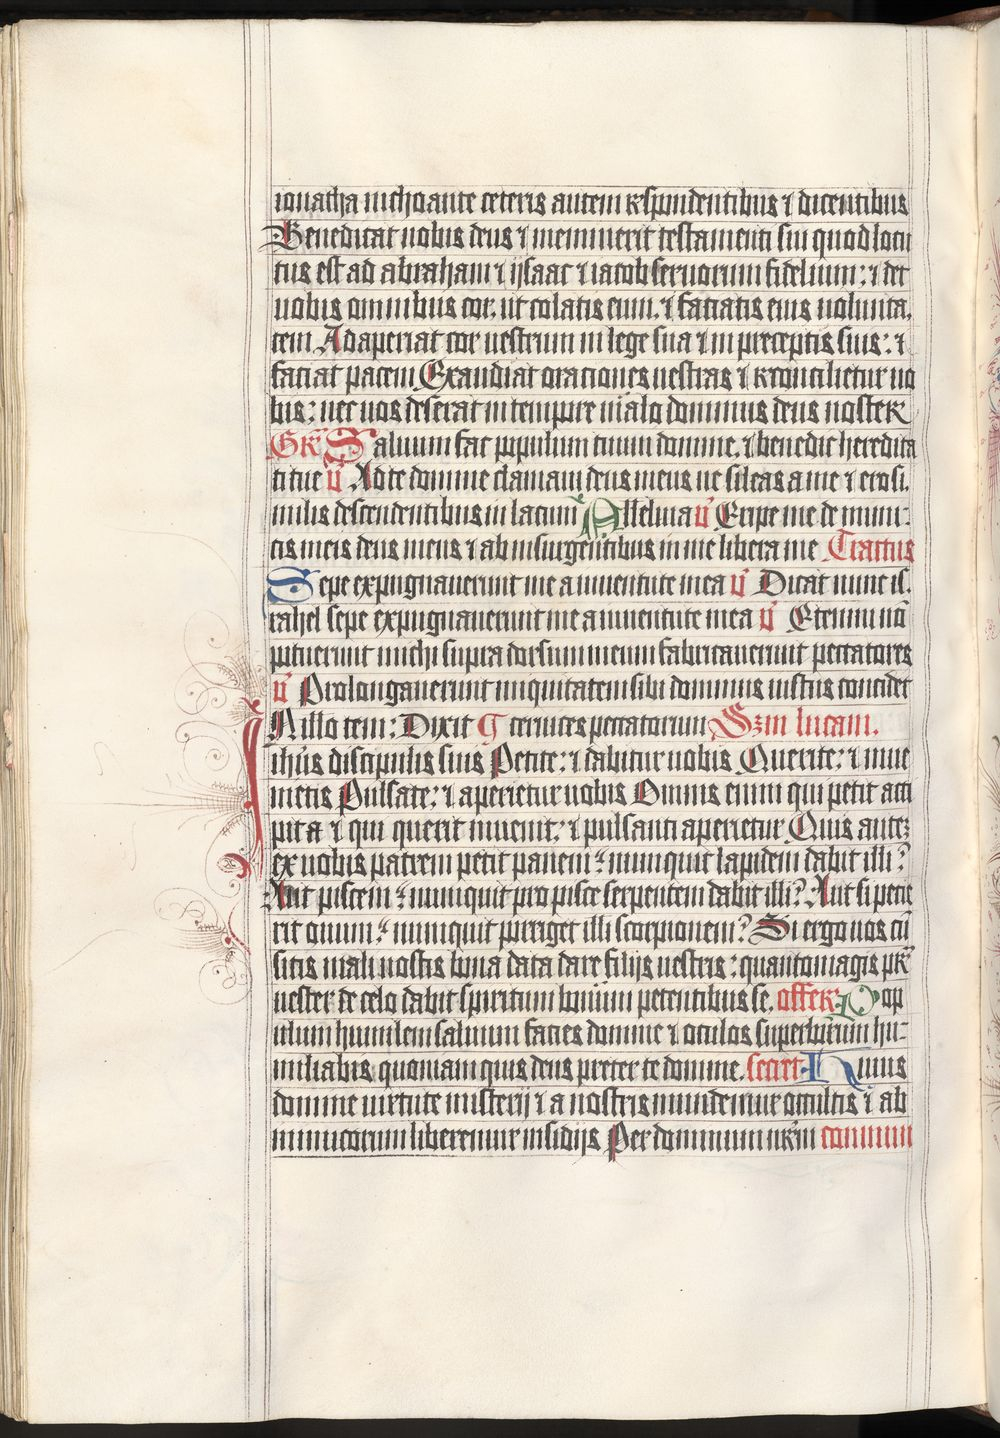 ionatha inchoante ceteris autem r̃spondentibus ⁊ dicentibus
Benedicat uobis deus ⁊ meminerit testamenti sui quod locu
tus est ad abraham ⁊ ysaac ⁊ iacob seruorum fidelium: ⁊ det
uobis omnibus cor. ut colatis eum. ⁊ faciatis eius uolunta.
tem Adaperiat cor uestrum in lege sua ⁊ in preceptis suis: ⁊
faciat pacem Exaudiat orationes uestras ⁊ reconcilietur uo
bis: nec uos deserat in tempore malo dominus deus noster
Gr̃ Saluum fac populum tuum domine. ⁊ benedic heredita
ti tue v̾ Ad te domine clamaui deus meus ne sileas a me ⁊ ero si.
milis descendentibus in lacum Alleluia v̾ Eripe me de inimi:
cis meis deus meus ⁊ ab insurgentibus in me libera me Tractus
Sepe expugnauerunt me a iuuentute mea v̾ Dicat nunc is.
rahel sepe expugnauerunt me a iuuentute mea v̾ Etenim nō
potuerunt michi supra dorsum meum fabricauerunt peccatores
v̾ Prolongauerunt iniquitatem sibi dominus iustus concidet
In illo tem: Dixit ¶ ceruices peccatorum Sꝫm lucam.
ihūs discipulis suis Petite: ⁊ dabitur uobis Querite: ⁊ inue
nietis Pulsate: ⁊ aperietur uobis Omnis enim qui petit acci
pit a ⁊ qui querit inuenit: ⁊ pulsanti aperietur Quis auteꝫ
ex uobis patrem petit panem: numquit lapidem dabit illi?
Aut piscem: numquit pro pisce serpentem dabit illi? Aut si pecie
rit ouum: numquit porriget illi scorpionem? Si ergo uos cū
sitis mali nostis bona data dare filijs uestris: quantomagis pr̃
uester de celo dabit spiritum bonum petentibus se. offer̃ Pop
ulum humilem saluum facies domine ⁊ oculos superborum hu-
miliabis quoniam quis deus preter te domine. secret Huius
domine uirtute misterij ⁊ a nostris mundemur occultis ⁊ ab
inimicorum liberemur insidijs Per dominum nr̃m commun